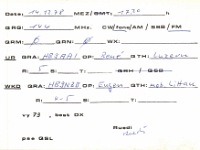 Date: 14.11.78 MEZ/GMT: 1730 h
QRG: 144 MHz. CW/fone/AM/SSB/FM
QRM: 0 QRN: 0 WX:
UR QRA: HB9AAI OP: QTH: Luzern
R: 5 S: T: QRH / QSB
WKD QRA: OP: Eugen QTH:
R: 4-5 S: T:
vy 73, best DX
Ruedi
pse QSL